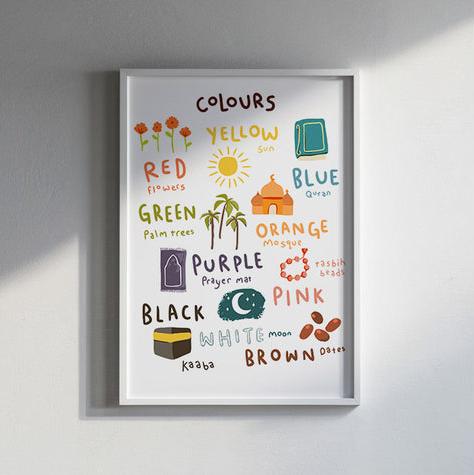 COLOURS
YELLOW
Sun
RED
flowers
BLUE
Quran
GREEN
Palm trees
ORANGE
Mosque
PURPLE
Prayer mat
tasbih
beads
PINK
BLACK
Kaaba
WHITE Moon
BROWN Dates